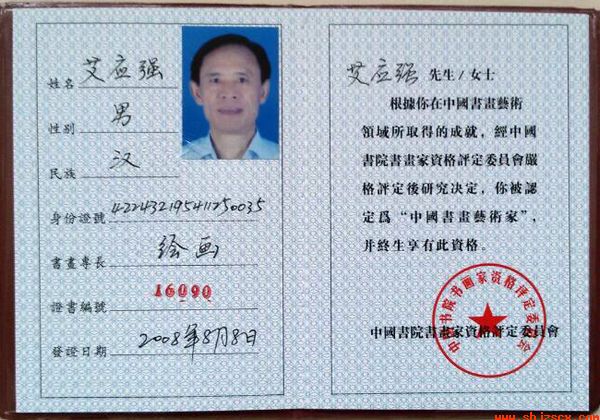 姓名 艾应强
性别 男
民族 汉
身份證號 422432195411250035
書畫專長 绘画
證書編號 16090
發證日期 2008年8月8日
艾应强 先生/女士
根據你在中國書畫藝術
領域所取得的成就，經中國
書院書畫家資格評定委員會嚴
格評定後研究决定，你被認
定爲“中國書畫藝術家”，
并終生享有此資格。
中國書院書畫家資格評定委員會
中國书院书画家资格评定委员会
www.shjzscx.com